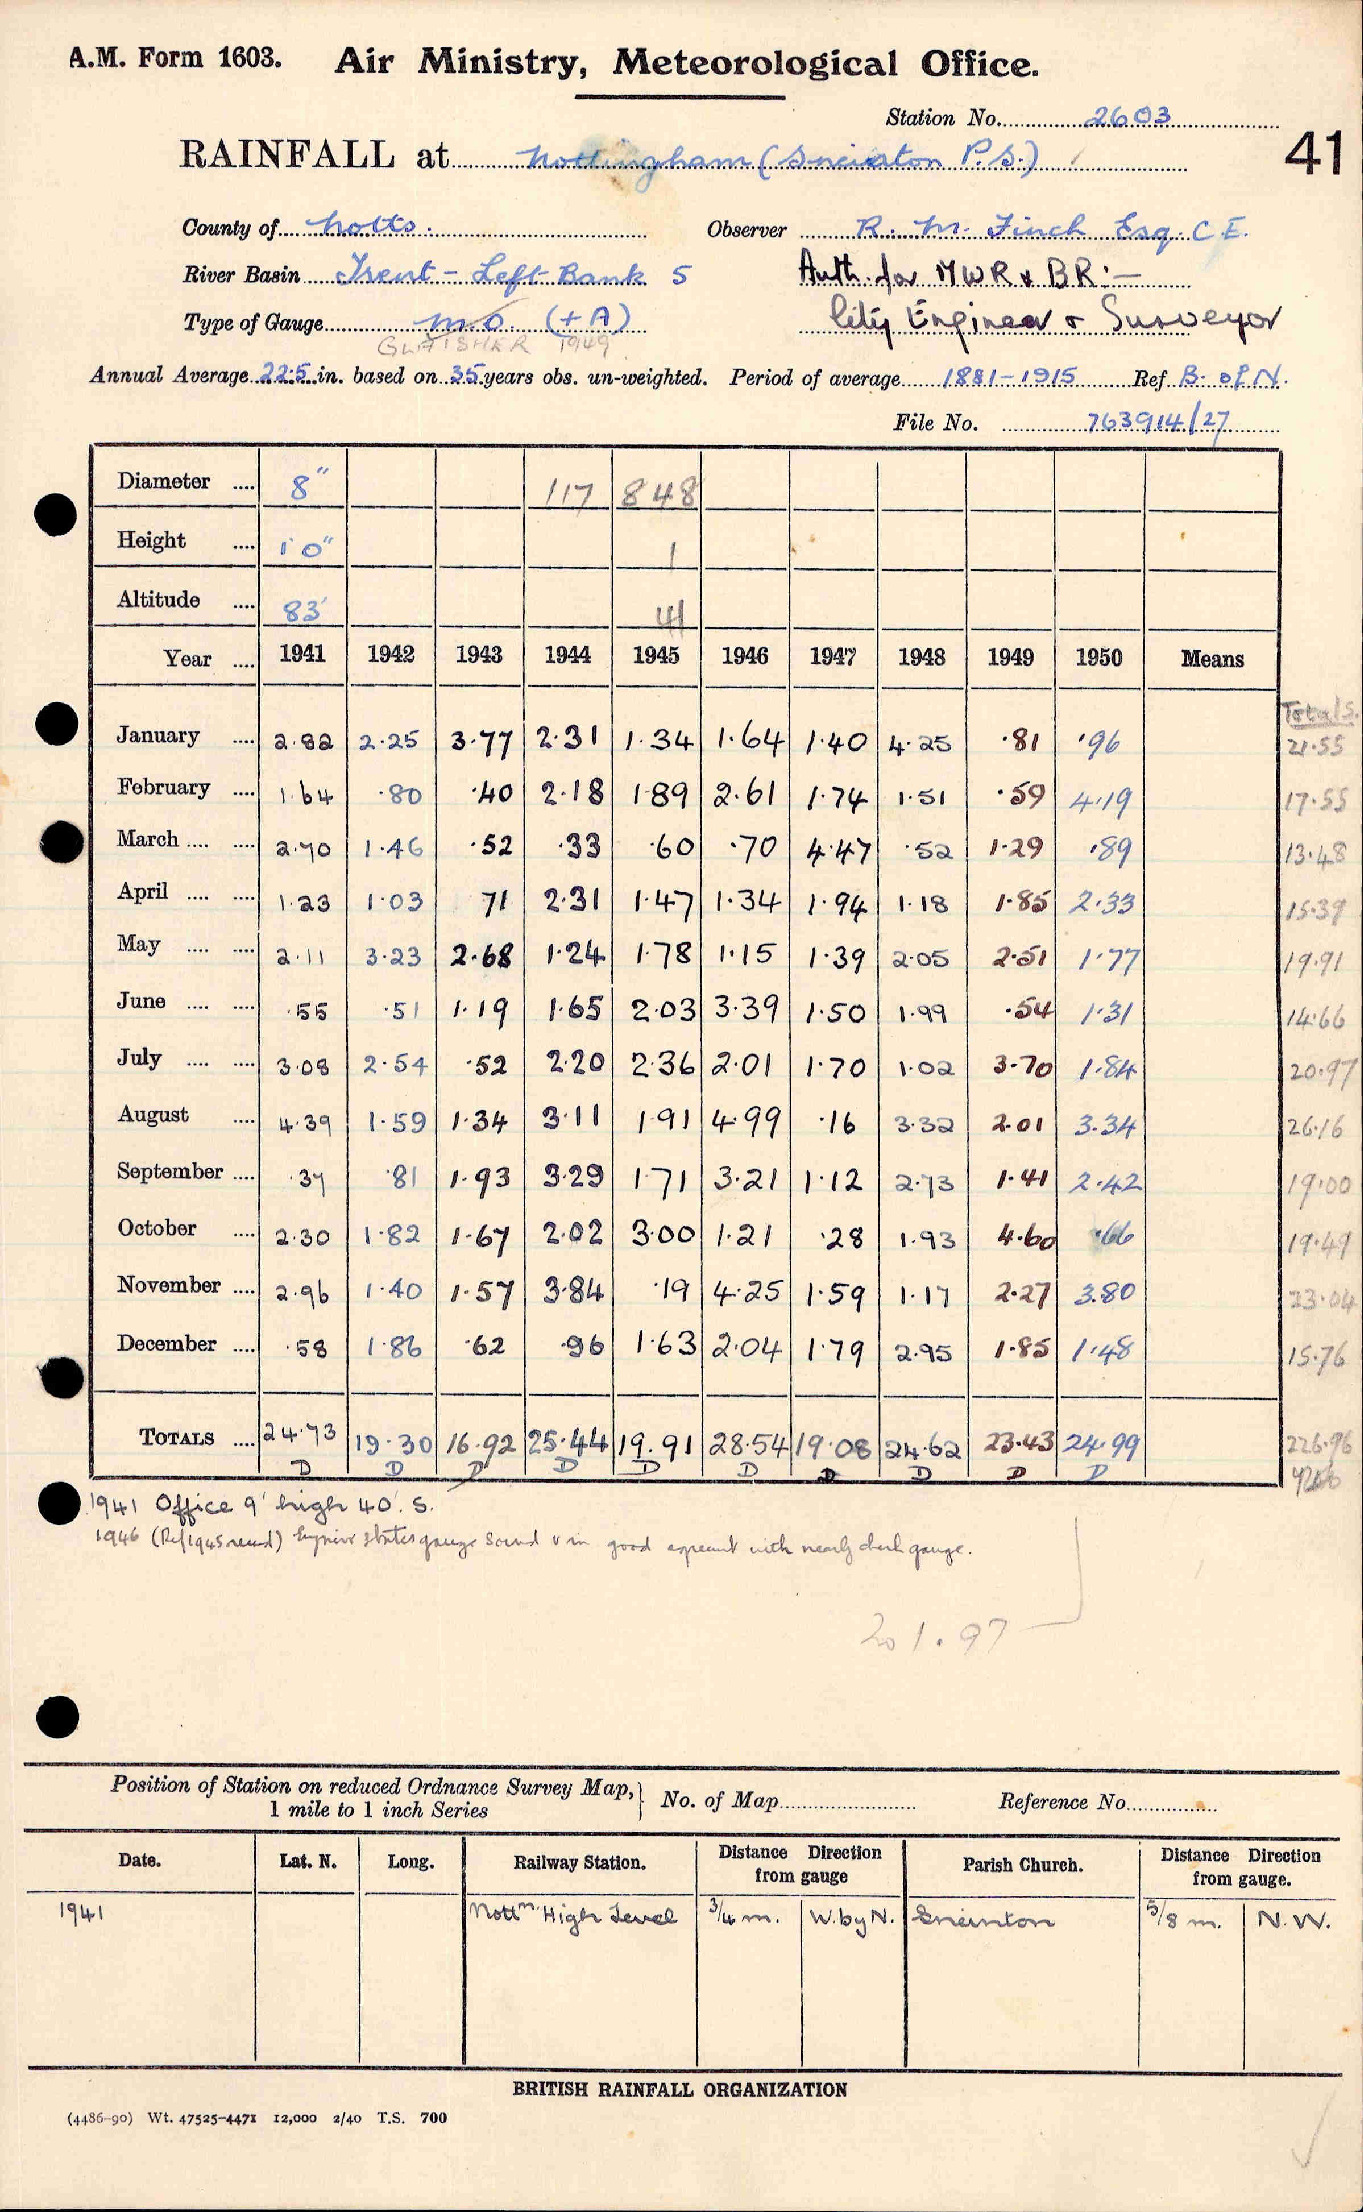 A.M. Form 1603. Air Ministry, Meteorological Office.
Station No. 2603
RAINFALL at Nottingham (Sneinton P.S.) 41
County of Notts. Observer R. M. Finch Esq. C.E.
River Basin Trent - Left Bank 5 Auth. for MWR & BR:-
Type of Gauge M.O. (+A) City Engineer & Surveyor
GLAISHER 1949
Annual Average 22.5 in. based on 35 years obs. un-weighted. Period of average 1881-1915 Ref B. of N.
File No. 763914/27
Diameter .... 8" 117 848
Height .... 1'0" 1
Altitude .... 83' 41
Year .... 1941 1942 1943 1944 1945 1946 1947 1948 1949 1950 Means
Totals.
January .... 2.82 2.25 3.77 2.31 1.34 1.64 1.40 4.25 .81 .96 21.55
February .... 1.64 .80 .40 2.18 1.89 2.61 1.74 1.51 .59 4.19 17.55
March .... .... 2.70 1.46 .52 .33 .60 .70 4.47 .52 1.29 .89 13.48
April .... .... 1.23 1.03 71 2.31 1.47 1.34 1.94 1.18 1.85 2.33 15.39
May .... .... 2.11 3.23 2.68 1.24 1.78 1.15 1.39 2.05 2.51 1.77 19.91
June .... .... .55 .51 1.19 1.65 2.03 3.39 1.50 1.99 .54 1.31 14.66
July .... .... 3.08 2.54 .52 2.20 2.36 2.01 1.70 1.02 3.70 1.84 20.97
August .... 4.39 1.59 1.34 3.11 1.91 4.99 .16 3.32 2.01 3.34 26.16
September .... .37 .81 1.93 3.29 1.71 3.21 1.12 2.73 1.41 2.42 19.00
October .... 2.30 1.82 1.67 2.02 3.00 1.21 .28 1.93 4.60 .66 19.49
November .... 2.96 1.40 1.57 3.84 .19 4.25 1.59 1.17 2.27 3.80 23.04
December .... .58 1.86 .62 .96 1.63 2.04 1.79 2.95 1.85 1.48 15.76
TOTALS .... 24.73 19.30 16.92 25.44 19.91 28.54 19.08 24.62 23.43 24.99 226.96
D D D D D D D D D D
1941 Office 9' high 40' S.
1946 (Ref 1945 record) gauge sound & in good agreement with nearly check gauge.
201.97
Position of Station on reduced Ordnance Survey Map,} No. of Map Reference No.
1 mile to 1 inch Series
Date. Lat. N. Long. Railway Station. Distance Direction from gauge Parish Church. Distance Direction from gauge.
1941 Nottm High Level 3/4 m. W. by N. Sneinton 5/8 m. N.W.
BRITISH RAINFALL ORGANIZATION
(4486-90) Wt. 47525-4471 12,000 2/40 T.S. 700